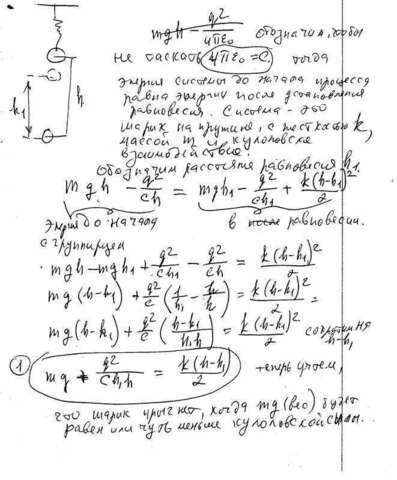 mgh - q²/4πε₀ обозначим, чтобы
не таскать 4πε₀ = C. тогда
энергия системы до начала процесса
равна энергии после установления
равновесия. Система - это
шарик на пружине, с жесткостью k,
массой m и кулоновское
взаимодействие.
h₁ h
обозначим расстояния равновесия h₁.
mgh - q²/ch = mgh₁ - q²/ch₁ + k(h-h₁)²/2
энергия до начала в после равновесии.
сгруппируем
mgh - mgh₁ + q²/ch₁ - q²/ch = k(h-h₁)²/2
mg(h-h₁) + q²/c (1/h₁ - 1/h) = k(h-h₁)²/2 =
mg(h-h₁) + q²/c (h-h₁/h₁h) = k(h-h₁)²/2 сократим на h-h₁
① mg + q²/ch₁h = k(h-h₁)/2 теперь учтем,
что шарик прыгнет, когда mg (вес) будет
равен или чуть меньше кулоновской силы.